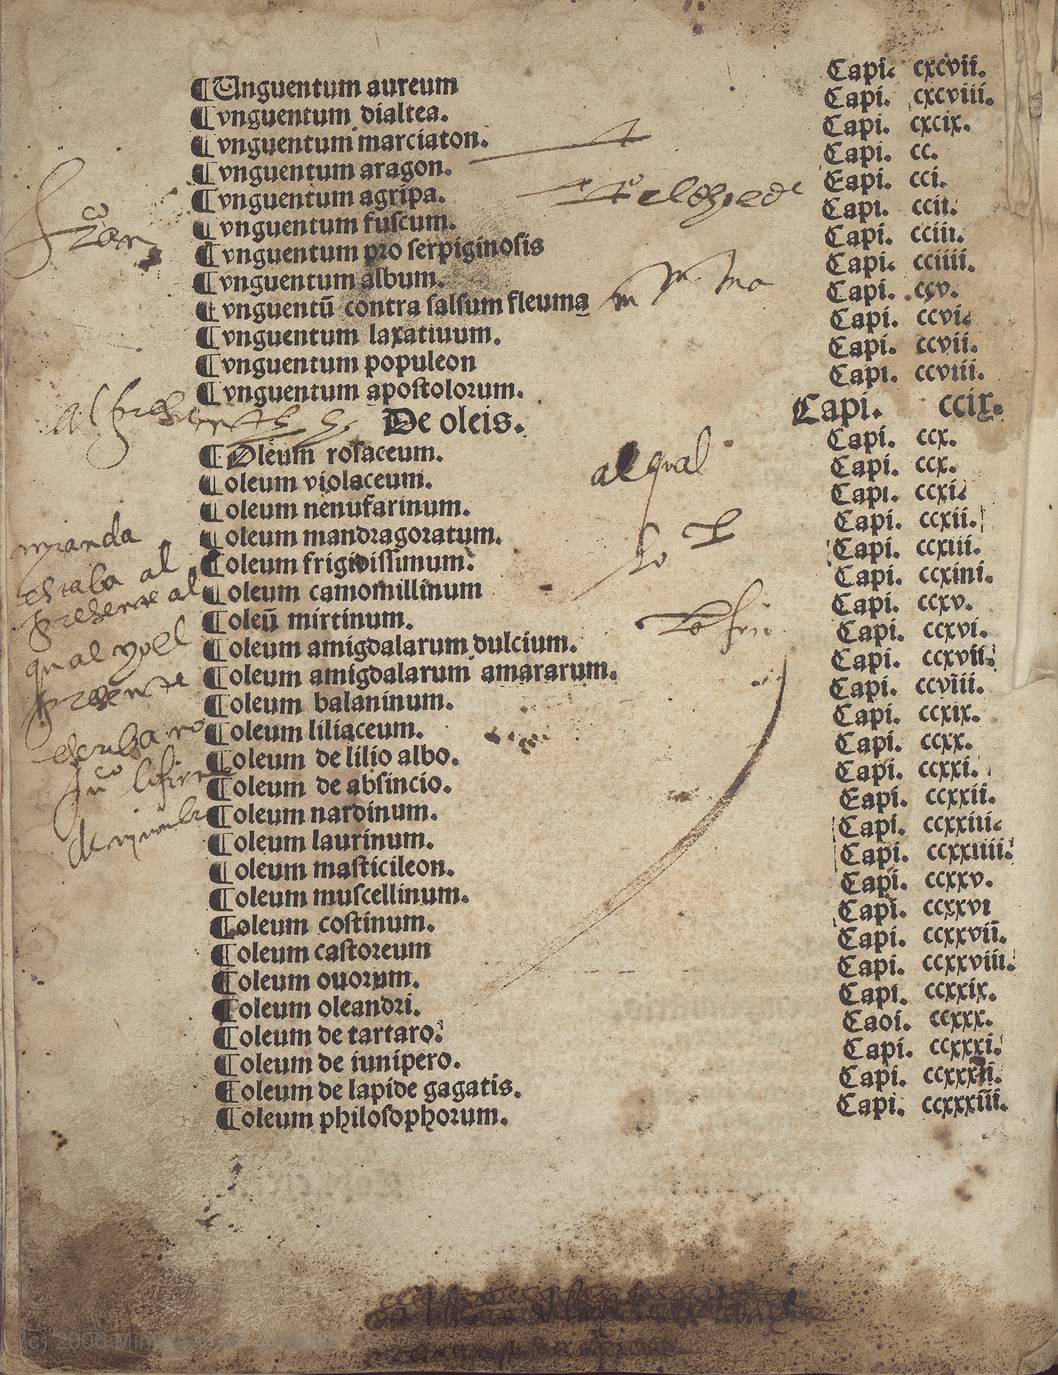 ¶Unguentum aureum Capi. cxcvii.
¶vnguentum dialtea. Capi. cxcviii.
¶vnguentum marciaton. Capi. cxcix.
¶vnguentum aragon. Capi. cc.
¶vnguentum agripa. Eapi. cci.
¶vnguentum fuſcum. Capi. ccii.
¶vnguentum pro ſerpiginoſis Capi. cciii.
¶vnguentum album. Capi. cciiii.
¶vnguentū contra ſalſum fleuma Capi. ccv.
¶vnguentum laxatiuum. Capi. ccvi.
¶vnguentum populeon Capi. ccvii.
¶vnguentum apoſtolorum. Capi. ccviii.
De oleis. Capi. ccix.
¶Oleum roſaceum. Capi. ccx.
¶oleum violaceum. Capi. ccx.
¶oleum nenufarinum. Capi. ccxi.
¶oleum mandragoratum. Capi. ccxii.
¶oleum frigidiſſimum. Capi. ccxiii.
¶oleum camomillinum Capi. ccxini.
¶oleū mirtinum. Capi. ccxv.
¶oleum amigdalarum dulcium. Capi. ccxvi.
¶oleum amigdalarum amararum. Capi. ccxvii.
¶oleum balaninum. Capi. ccviii.
¶oleum liliaceum. Capi. ccxix.
¶oleum de lilio albo. Capi. ccxx.
¶oleum de abſincio. Capi. ccxxi.
¶oleum nardinum. Eapi. ccxxii.
¶oleum laurinum. Capi. ccxxiii.
¶oleum maſticileon. Capi. ccxxiiii.
¶oleum muſcellinum. Capi. ccxxv.
¶oleum coſtinum. Capi. ccxxvi
¶oleum caſtoreum Capi. ccxxvii.
¶oleum ouorum. Capi. ccxxviii.
¶oleum oleandri. Capi. ccxxix.
¶oleum de tartaro. Caoi. ccxxx.
¶oleum de iunipero. Capi. ccxxxi.
¶oleum de lapide gagatis. Capi. ccxxxii.
¶oleum philoſophorum. Capi. ccxxxiii.
al qual
al
al
qual